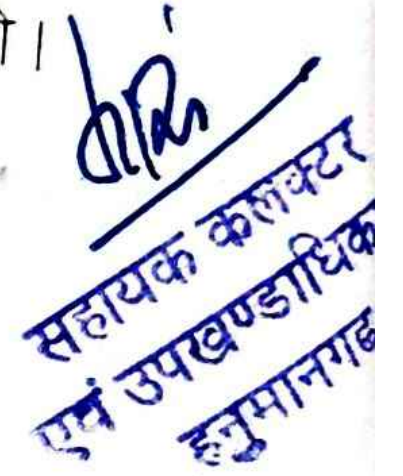 सहायक कलक्टर
एवं उपखण्डाधिक
हनुमानगढ